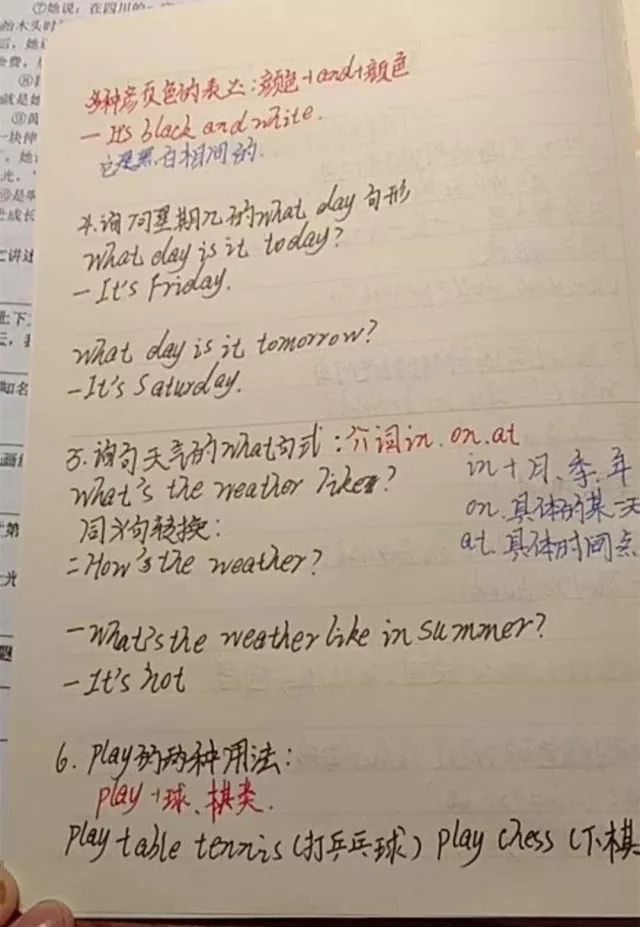 多种颜色的表达:颜色+and+颜色
- It's black and white.
它是黑白相间的.
4.询问星期几的what day 句形
What day is it today?
- It's Friday.
What day is it tomorrow?
- It's Saturday.
5.询问天气的What句式:介词in.on.at
What's the weather like?
in+月、季、年
on.具体的某一天
同义句转换:
at.具体时间点
=How's the weather?
- What's the weather like in summer?
- It's hot
6. play的两种用法:
play+球、棋类.
Play table tennis(打乒乓球) play chess (下棋